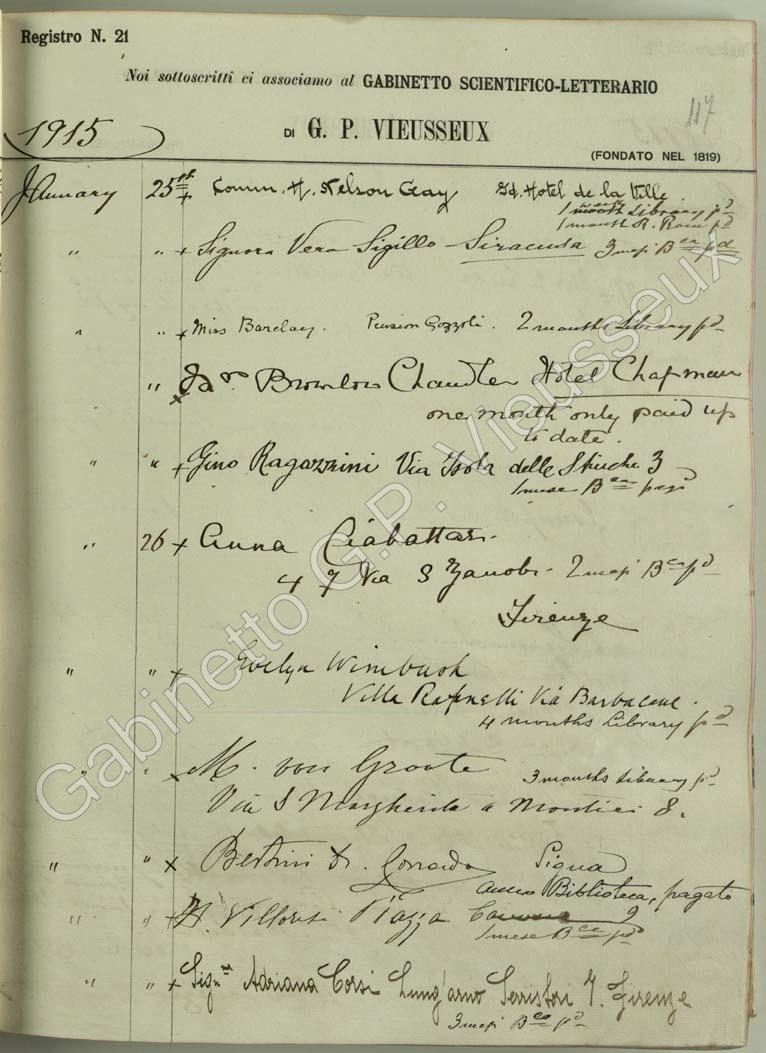 Registro N. 21
Noi sottoscritti ci associamo al GABINETTO SCIENTIFICO-LETTERARIO
117
1915
DI G. P. VIEUSSEUX
(FONDATO NEL 1819)
January 25 + Comm. H. Nelson Gay Gd. Hotel de la Ville
1 month Library pd
1 month R. Room pd
" " + Signora Vera Sigillo - Siracusa 3 mesi Bca pd
" " + Miss Barclay. Pension Gozzoli. 2 months Library pd
" + Brownlow Chandler Hotel Chapman
one month only paid up
to date.
" " + Gino Ragazzini Via Isola delle Stinche 3
1 mese Bca pagò
" 26 + Anna Ciabattari
47 Via S Zanobi - 2 mesi Bca pd
Firenze
" " + Evelyn Wimbush
Villa Via Barbacane.
4 months Library pd
" " + M. von Groote 3 months Library pd
Via S Margherita a Montici 8.
" " + Bertini Dr. Corrado Signa
anno Biblioteca, pagato
" " + Villoresi Piazza 9
1 mese Bca pd
" " + Sigra Adriana Corsi Lung'arno Serristori 7. Firenze
3 mesi Bca pd
Gabinetto G.P. Vieusseux